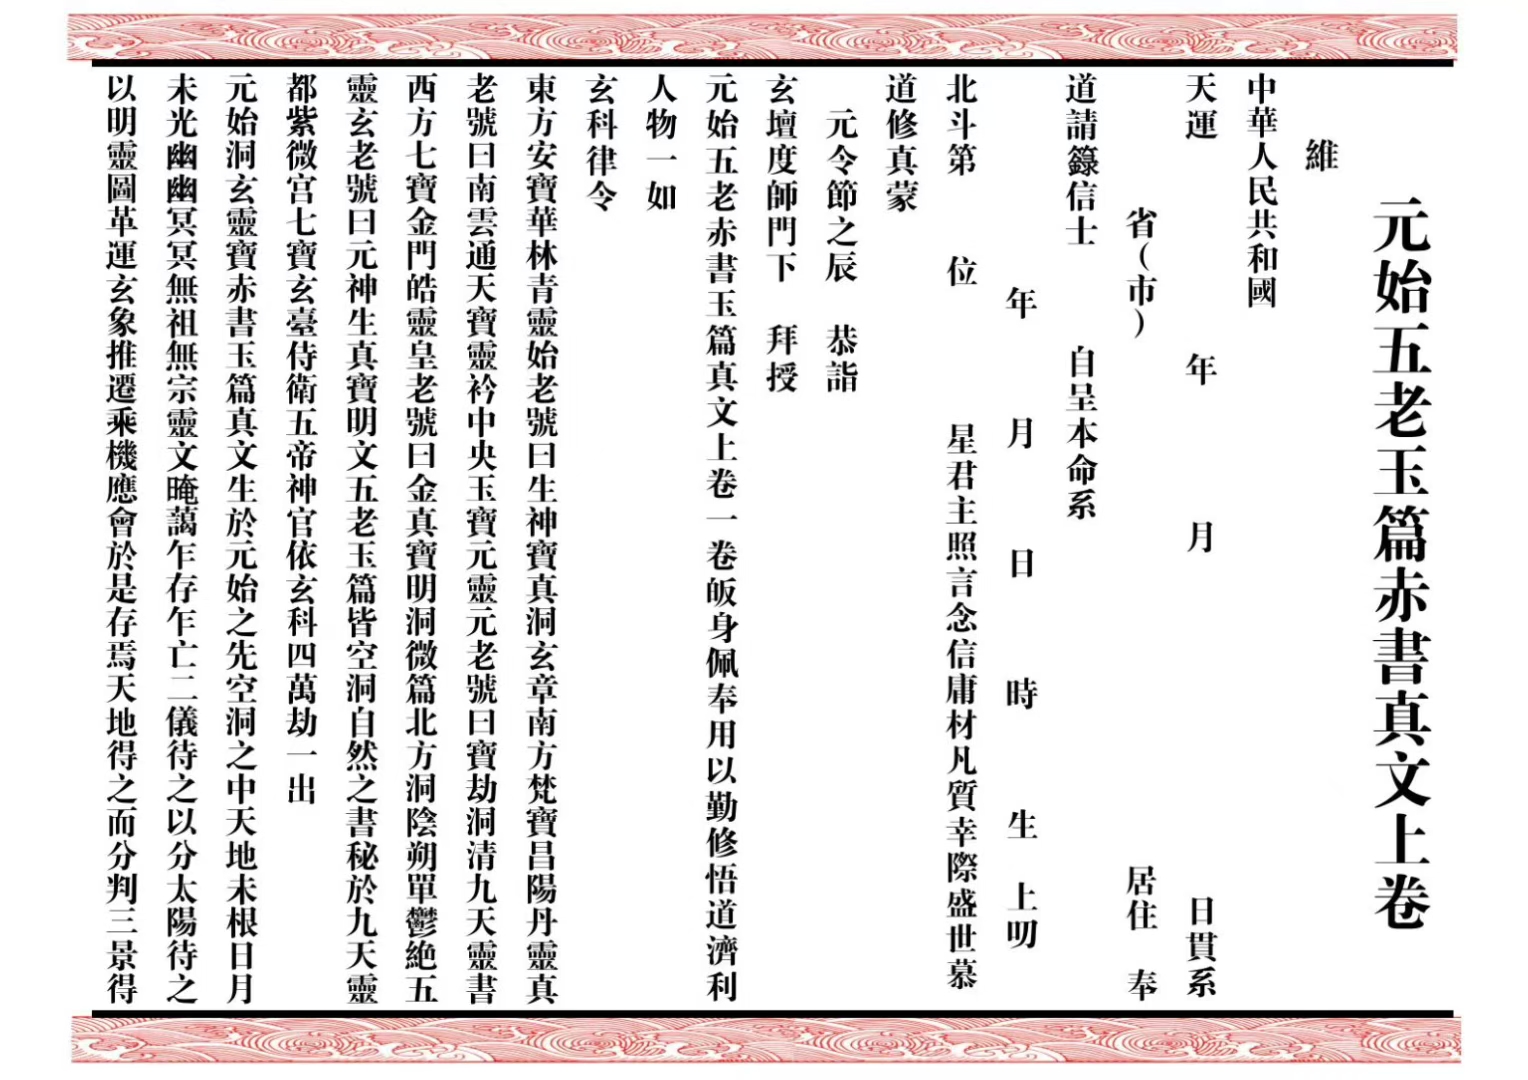 元始五老玉篇赤書真文上卷
維
中華人民共和國
天運　年　月　日貫系
省(市)　居住　奉
道請籙信士　自呈本命系
年　月　日　時　生　上叩
北斗第　位　星君主照言念信庸材凡質幸際盛世慕
道修真蒙
元令節之辰　恭詣
玄壇度師門下　拜授
元始五老赤書玉篇真文上卷一卷皈身佩奉用以勤修悟道濟利
人物一如
玄科律令
東方安寶華林青靈始老號曰生神寶真洞玄章南方梵寶昌陽丹靈真
老號曰南雲通天寶靈衿中央玉寶元靈元老號曰寶劫洞清九天靈書
西方七寶金門皓靈皇老號曰金真寶明洞微篇北方洞陰朔單鬱絕五
靈玄老號曰元神生真寶明文五老玉篇皆空洞自然之書秘於九天靈
都紫微宮七寶玄臺侍衛五帝神官依玄科四萬劫一出
元始洞玄靈寶赤書玉篇真文生於元始之先空洞之中天地未根日月
未光幽幽冥冥無祖無宗靈文晻藹乍存乍亡二儀待之以分太陽待之
以明靈圖革運玄象推遷乘機應會於是存焉天地得之而分判三景得